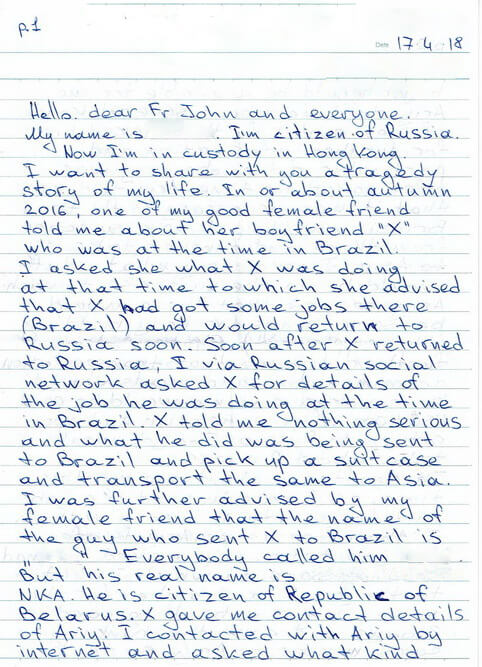 p.1
Date 17 4 18
Hello. dear Fr John and everyone.
My name is . I'm citizen of Russia.
Now I'm in custody in Hong Kong.
I want to share with you a tragedy
story of my life. In or about autumn
2016, one of my good female friend
told me about her boyfriend "X"
who was at the time in Brazil.
I asked she what X was doing
at that time to which she advised
that X had got some jobs there
(Brazil) and would return to
Russia soon. Soon after X returned
to Russia, I via Russian social
network asked X for details of
the job he was doing at the time
in Brazil. X told me nothing serious
and what he did was being sent
to Brazil and pick up a suitcase
and transport the same to Asia.
I was further advised by my
female friend that the name of
the guy who sent X to Brazil is
" " Everybody called him
But his real name is
NKA. He is citizen of Republic of
Belarus. X gave me contact details
of Ariy. I contacted with Ariy by
internet and asked what kind